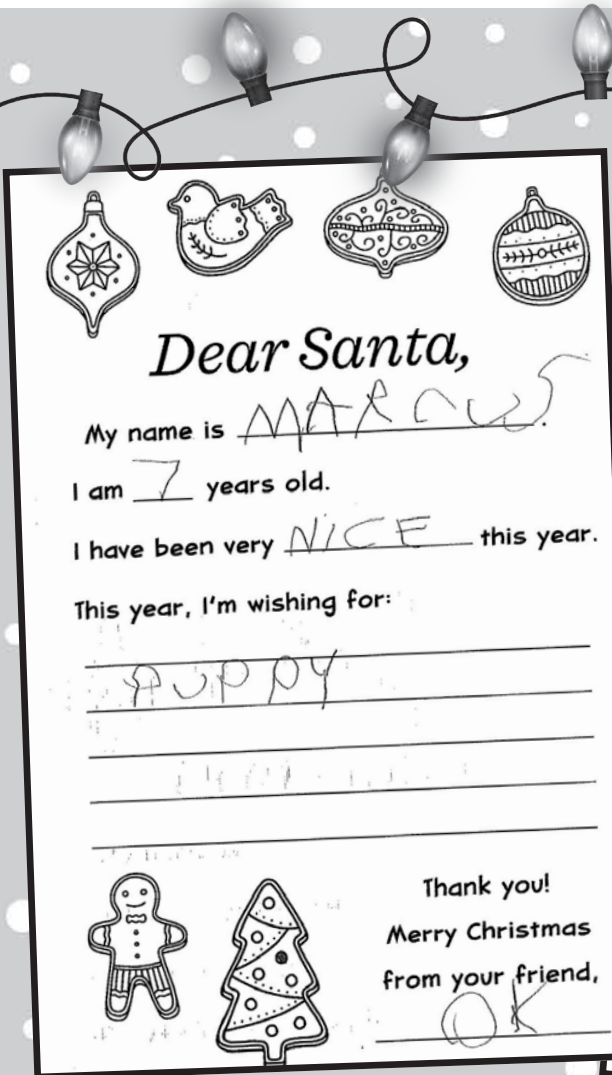 Dear Santa,
My name is MARCUS.
I am 7 years old.
I have been very NiCE this year.
This year, I'm wishing for:
PUPPY
Thank you!
Merry Christmas
from your friend,
OK